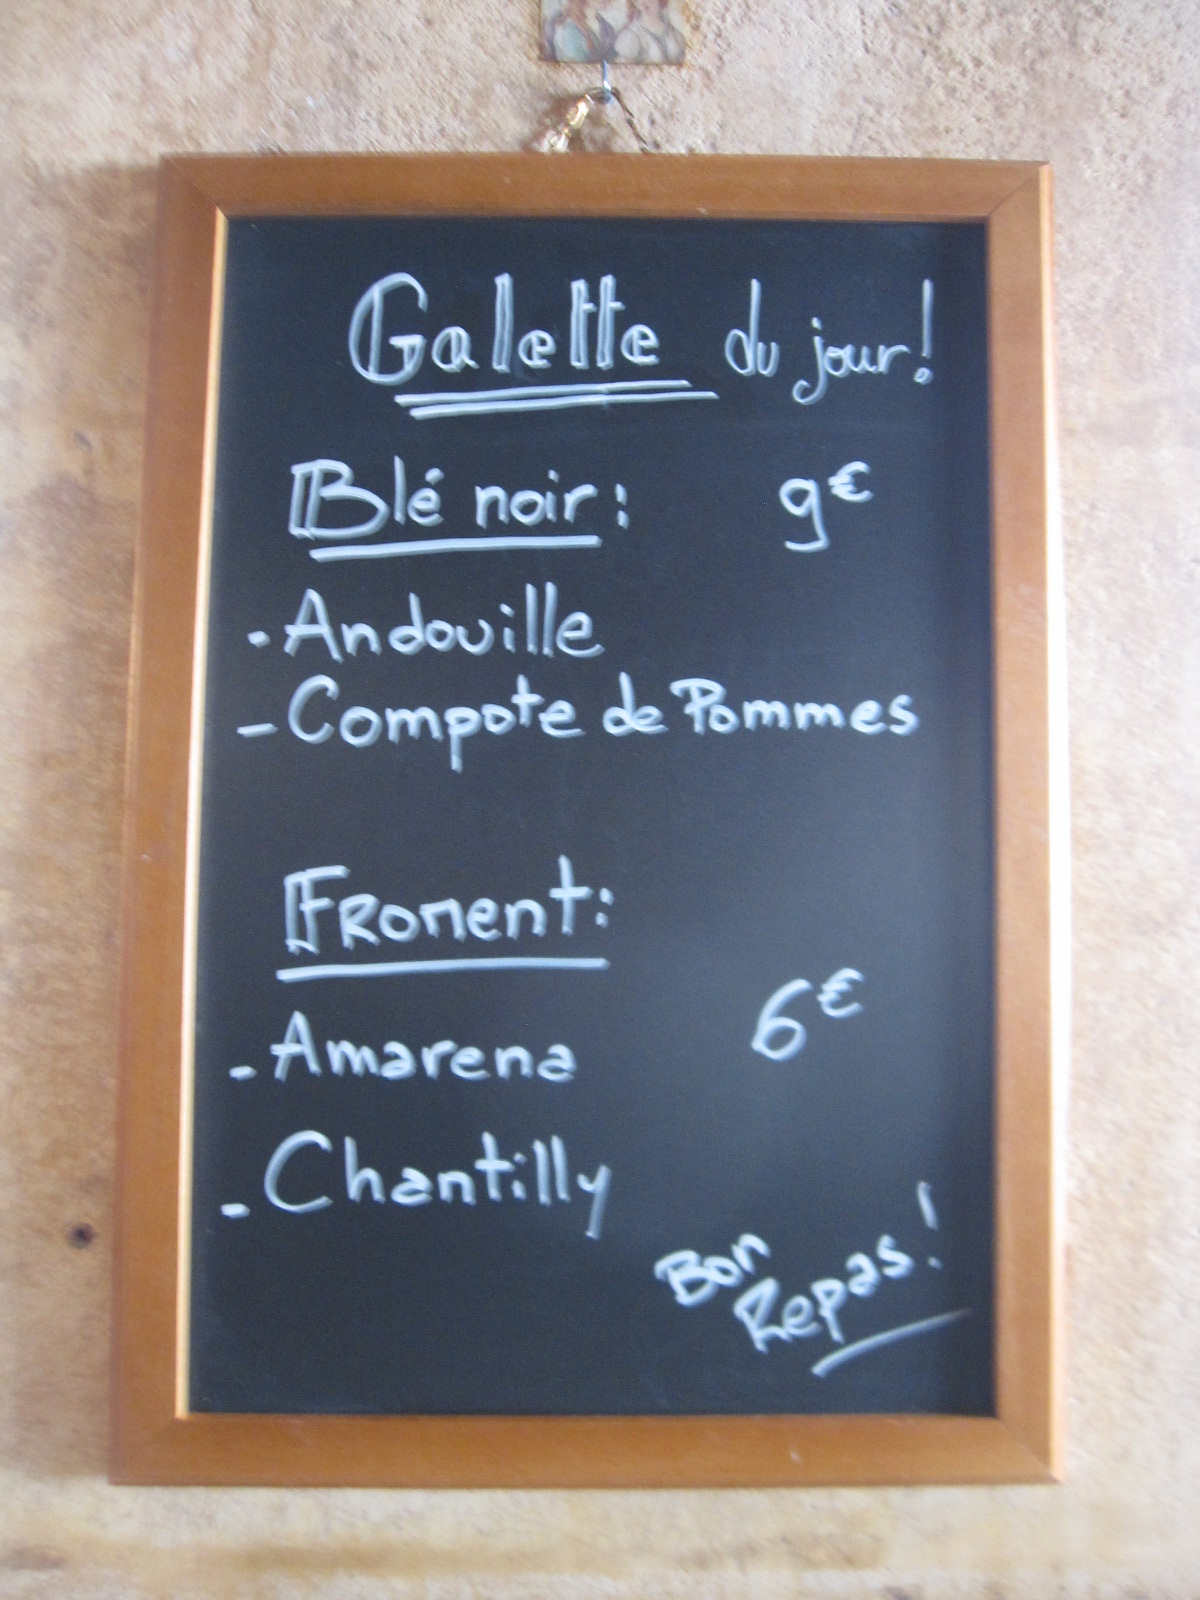 Galette du jour!
Blé noir: 9€
- Andouille
- Compote de Pommes
Froment:
6€
- Amarena
- Chantilly
Bon
Repas!